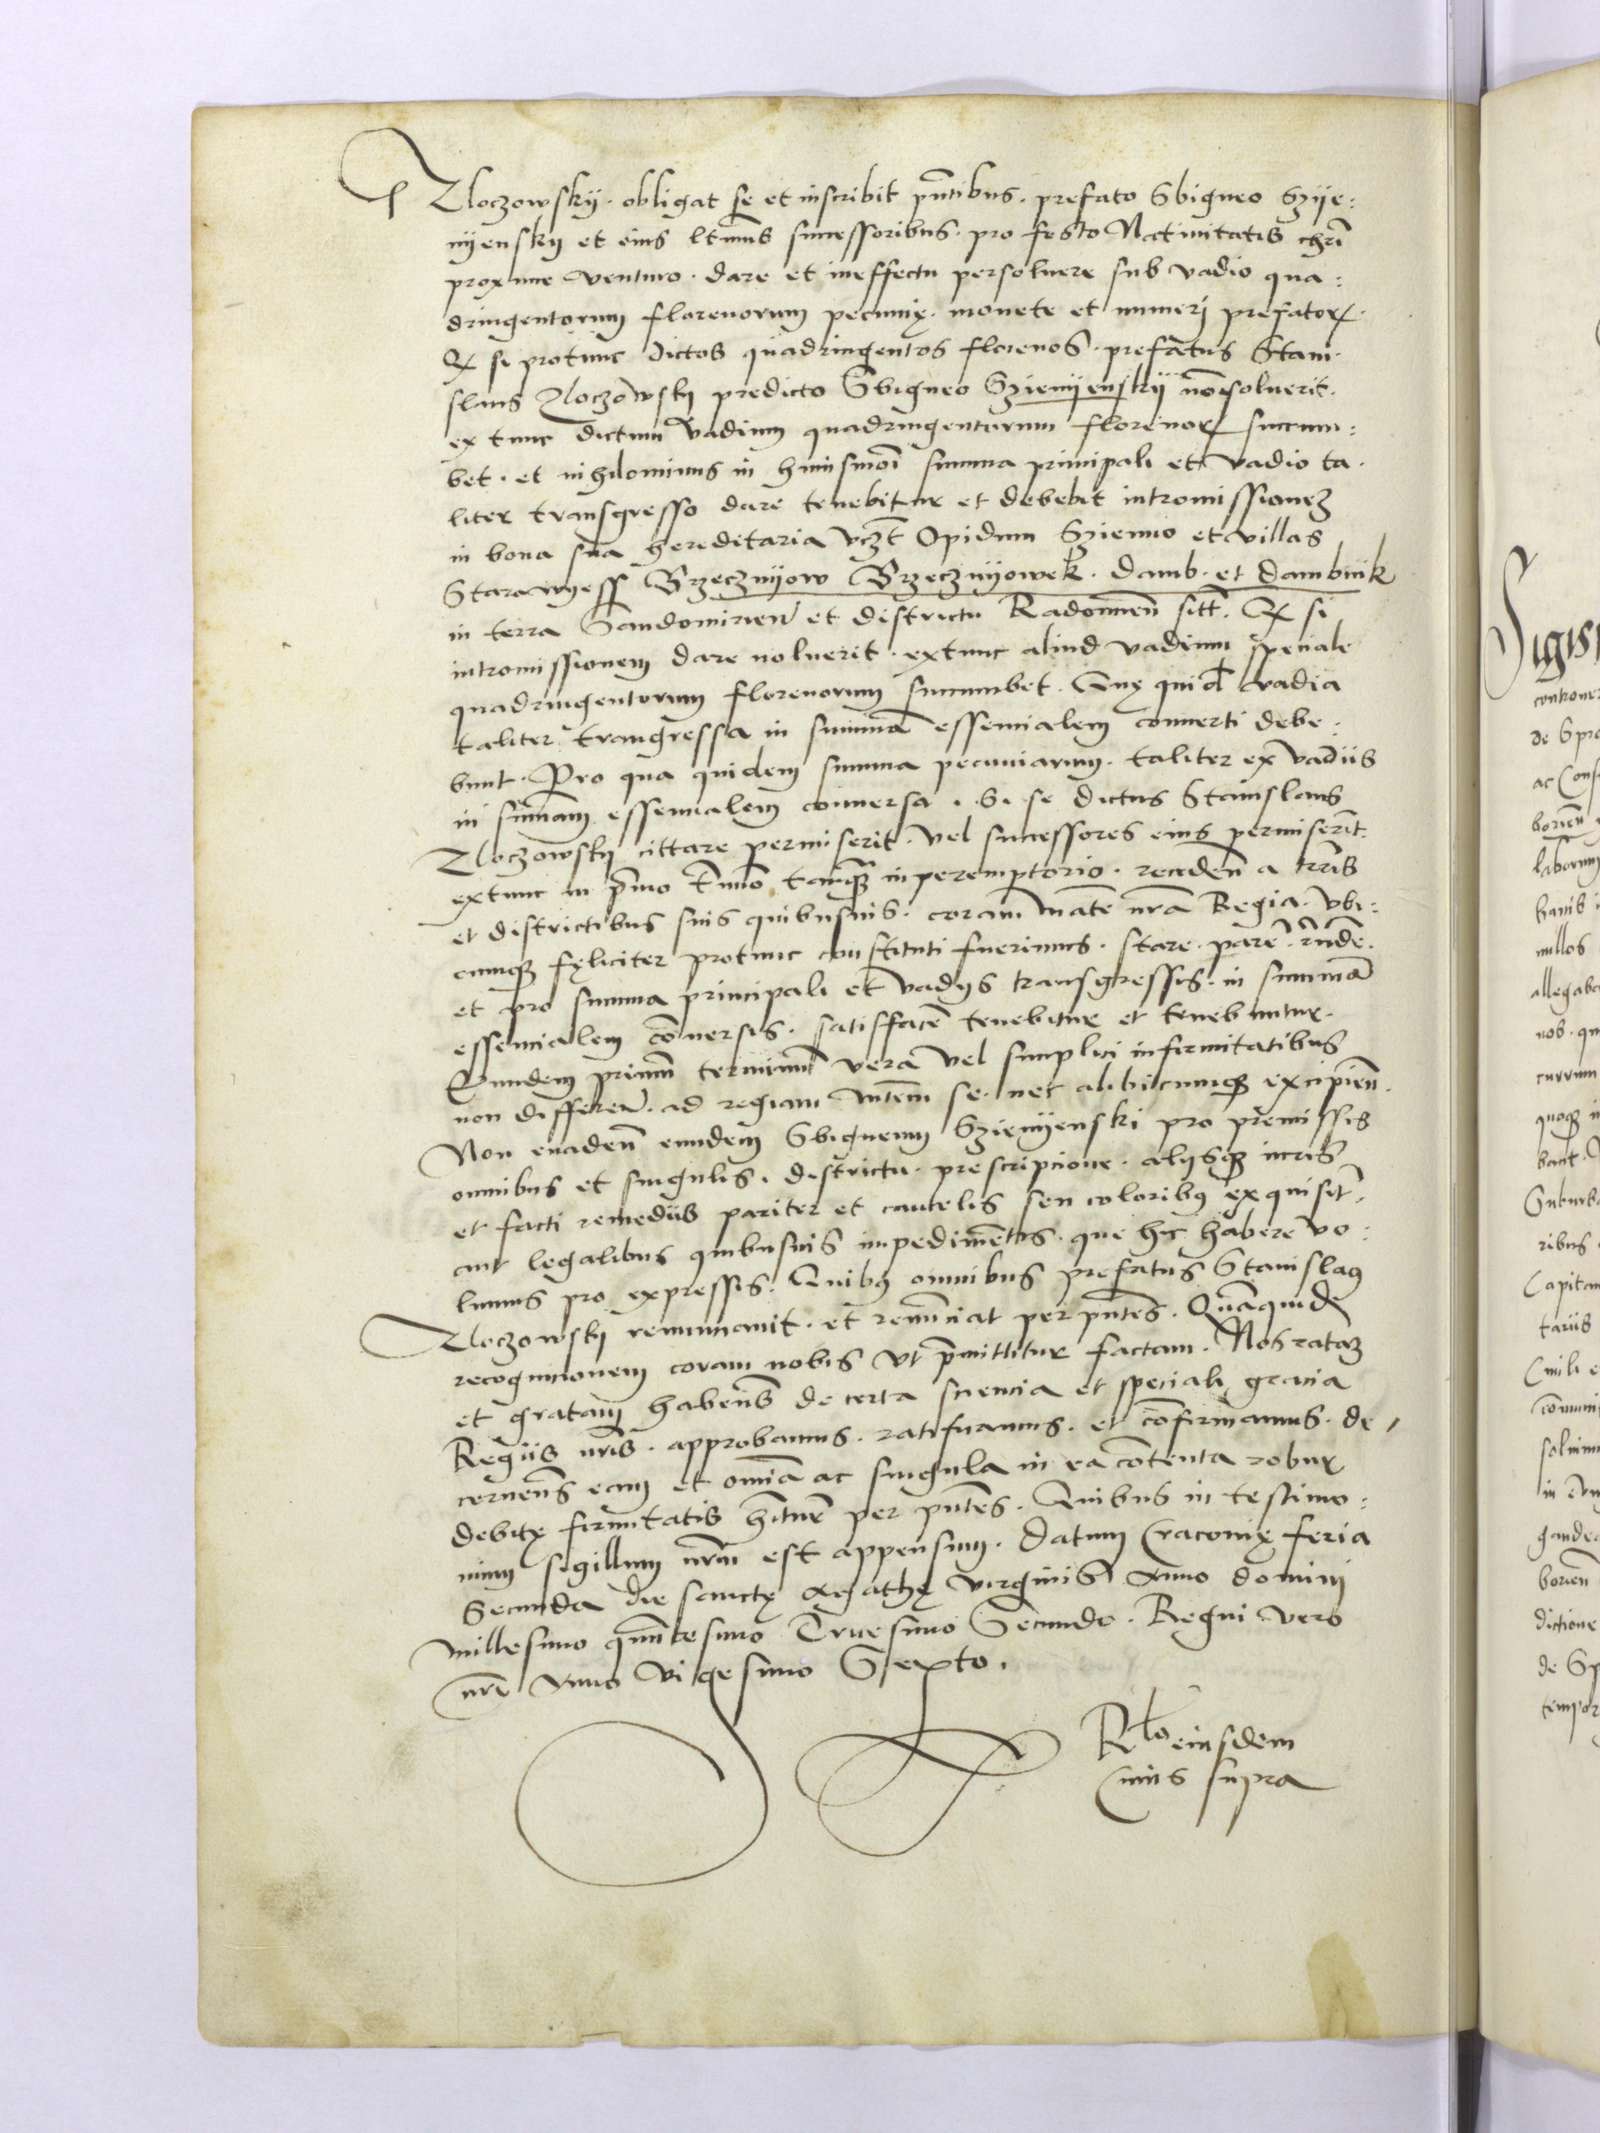 Zloczowskij · obligat se et inscribit pntibus · prefato Sbigneo Szije:
nijenskij et eius ltimis successoribus · pro festo Natiuitatis chri
proxime venturo · dare et in effectu persoluere sub vadio qua:
dringentorum florenorum pecunię · monete et numerj prefatorꝝ ·
Qꝫ si protunc dictos quadringentos florenos · prefatus Stani·
slaus Zloczowskij predicto Sbigneo Szienijenskij nō soluerit ·
ex tunc dictum vadium quadringentorum florenorꝝ succum:
bet · et nihilominus in huiusmoi summa principali et vadio ta·
liter transgresso dare tenebitur et debebit intromissioneꝫ
in bona sua hereditaria vczt Opidum Szienno et villas
Starawyess Brzecznijow Brzecznijowek · Damb · et Dambnik
in terra Sandomirien et districtu Radomien sitt · Qꝫ si
intromissionem dare noluerit · extunc aliud vadium speciale
quadringentorum florenorum succumbet · Quę quid vadia
taliter trangressa in summā essencialem conuerti debe:
bunt · Pro qua quidem summa pecuniarum · taliter ex vadiis
in summam essencialem conuersa · Si se dictus Stanislaus
Zloczowskij cittare permiserit · vel successores eius permiserīt ·
extunc in pmo tmino tamqꝫ in peremptorio · recedeń a terris
et districtibus suis quibusuis · coram Mate nra Regia · vbi:
cumqꝫ fęliciter protunc constituti fuerimus · stare · parē · rndē ·
et pro summa principali et vadijs transgressis · in summā
essencialem cōuersis · satisfacē tenebitur et tenebuntur ·
Eundem primum terminum vera vel simplici infirmitatibus
non differeń · ad regiam Mtem se · nec alibicumqꝫ excipień ·
Non euadeń eundem Sbigneum Szienijenski pro premissis
omnibus et singulis · districtu · prescripcione · alijsqꝫ iuris
et facti remediis pariter et cautelis seu coloribꝰ exquisit ·
aut legalibus quibusuis impedimētis · que hic habere vo:
lumus pro expressis · Quibꝰ omnibus prefatus Stanislaꝰ
Zloczowskij renunciauit · et renūciat per pntes · Quā quidē
recognicionem coram nobis vt pmittitur factam · Nos rataꝫ
et gratam habeñs de certa sciencia et speciali gracia
Regiis nris · approbamus · ratificamus · et cōfirmamus · de,
cerneñs eam et omīa ac singula in ea contenta robur
debitę firmitatis hituē per pntes · Quibus in testimo:
nium sigillum nrm est appensum · Datum Cracouię feria
Secunda die sanctę Agathę virginis Anno domini
millesimo quingētesimo Tricesimo Secundo · Regni vero
nri Anno vigesimo Sexto ·
Rlo eiusdem
cuius supra